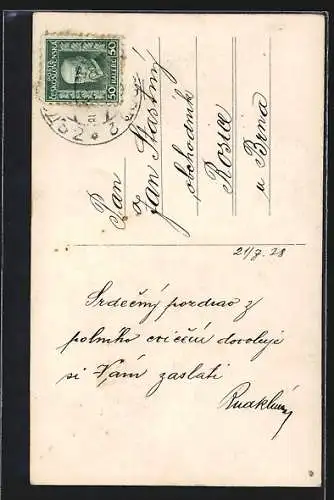 ČESKOSLOVENSKÁ
50 HALÉŘŮ 50
Pan
Jan Šťastný
obchodník
Rosice
u Brna
21/7. 28
Srdečný pozdrav z
polního cvičení dovoluji
si Vám zaslati